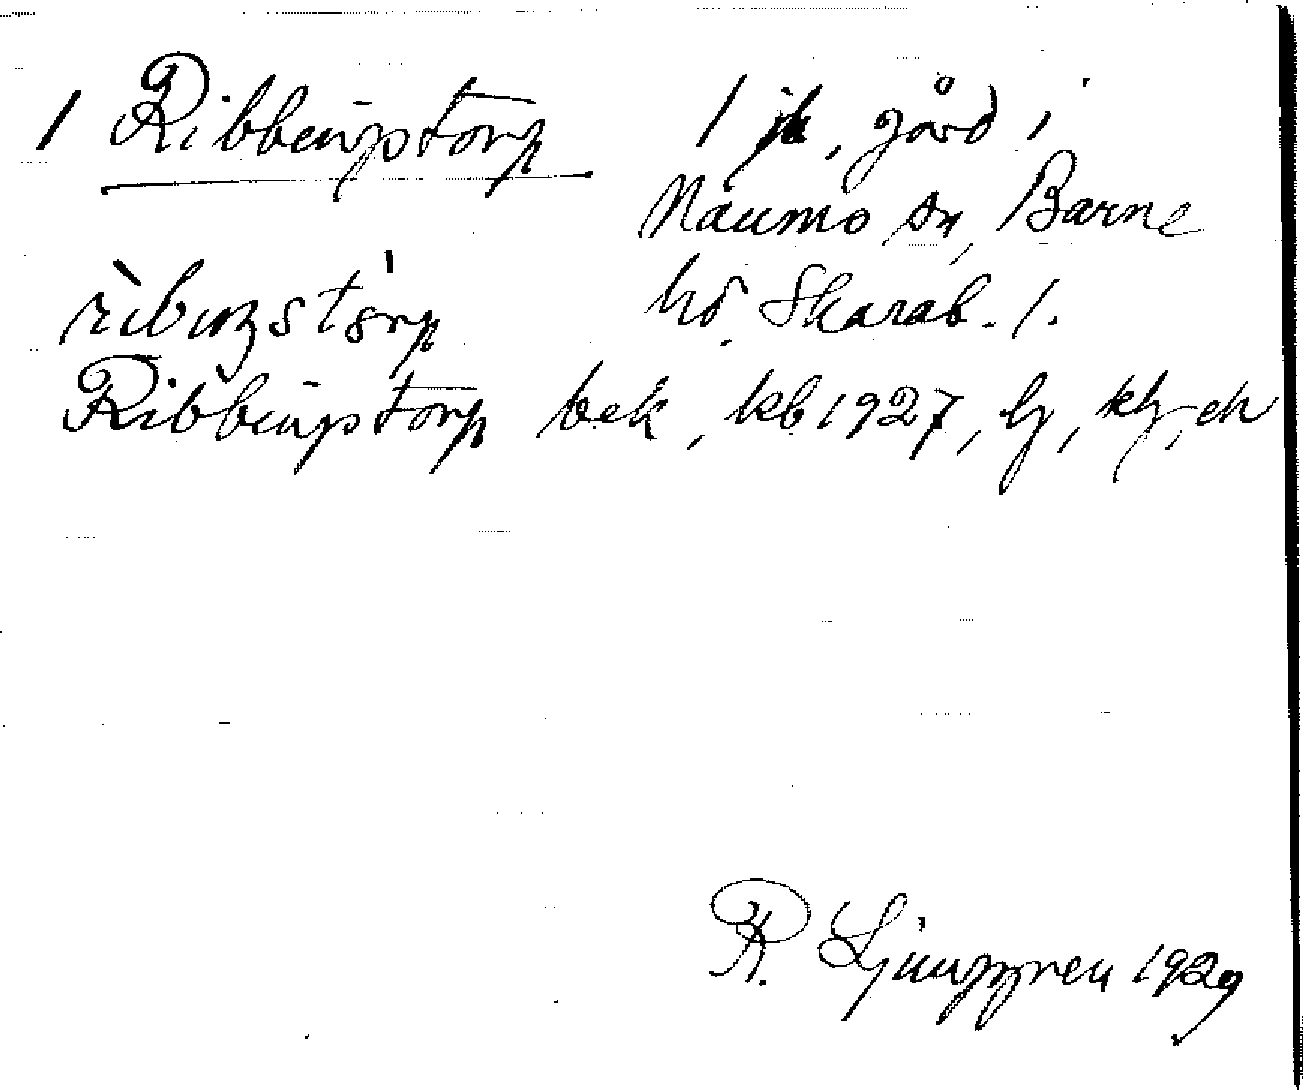 1 Ribbingstorp 1 jb, gård i
Naumo sn, Barne
ribiŋstårp hd. Skarab. l.
Ribbingstorp bek, kb 1927, lj,
R. Ljunggren 1929